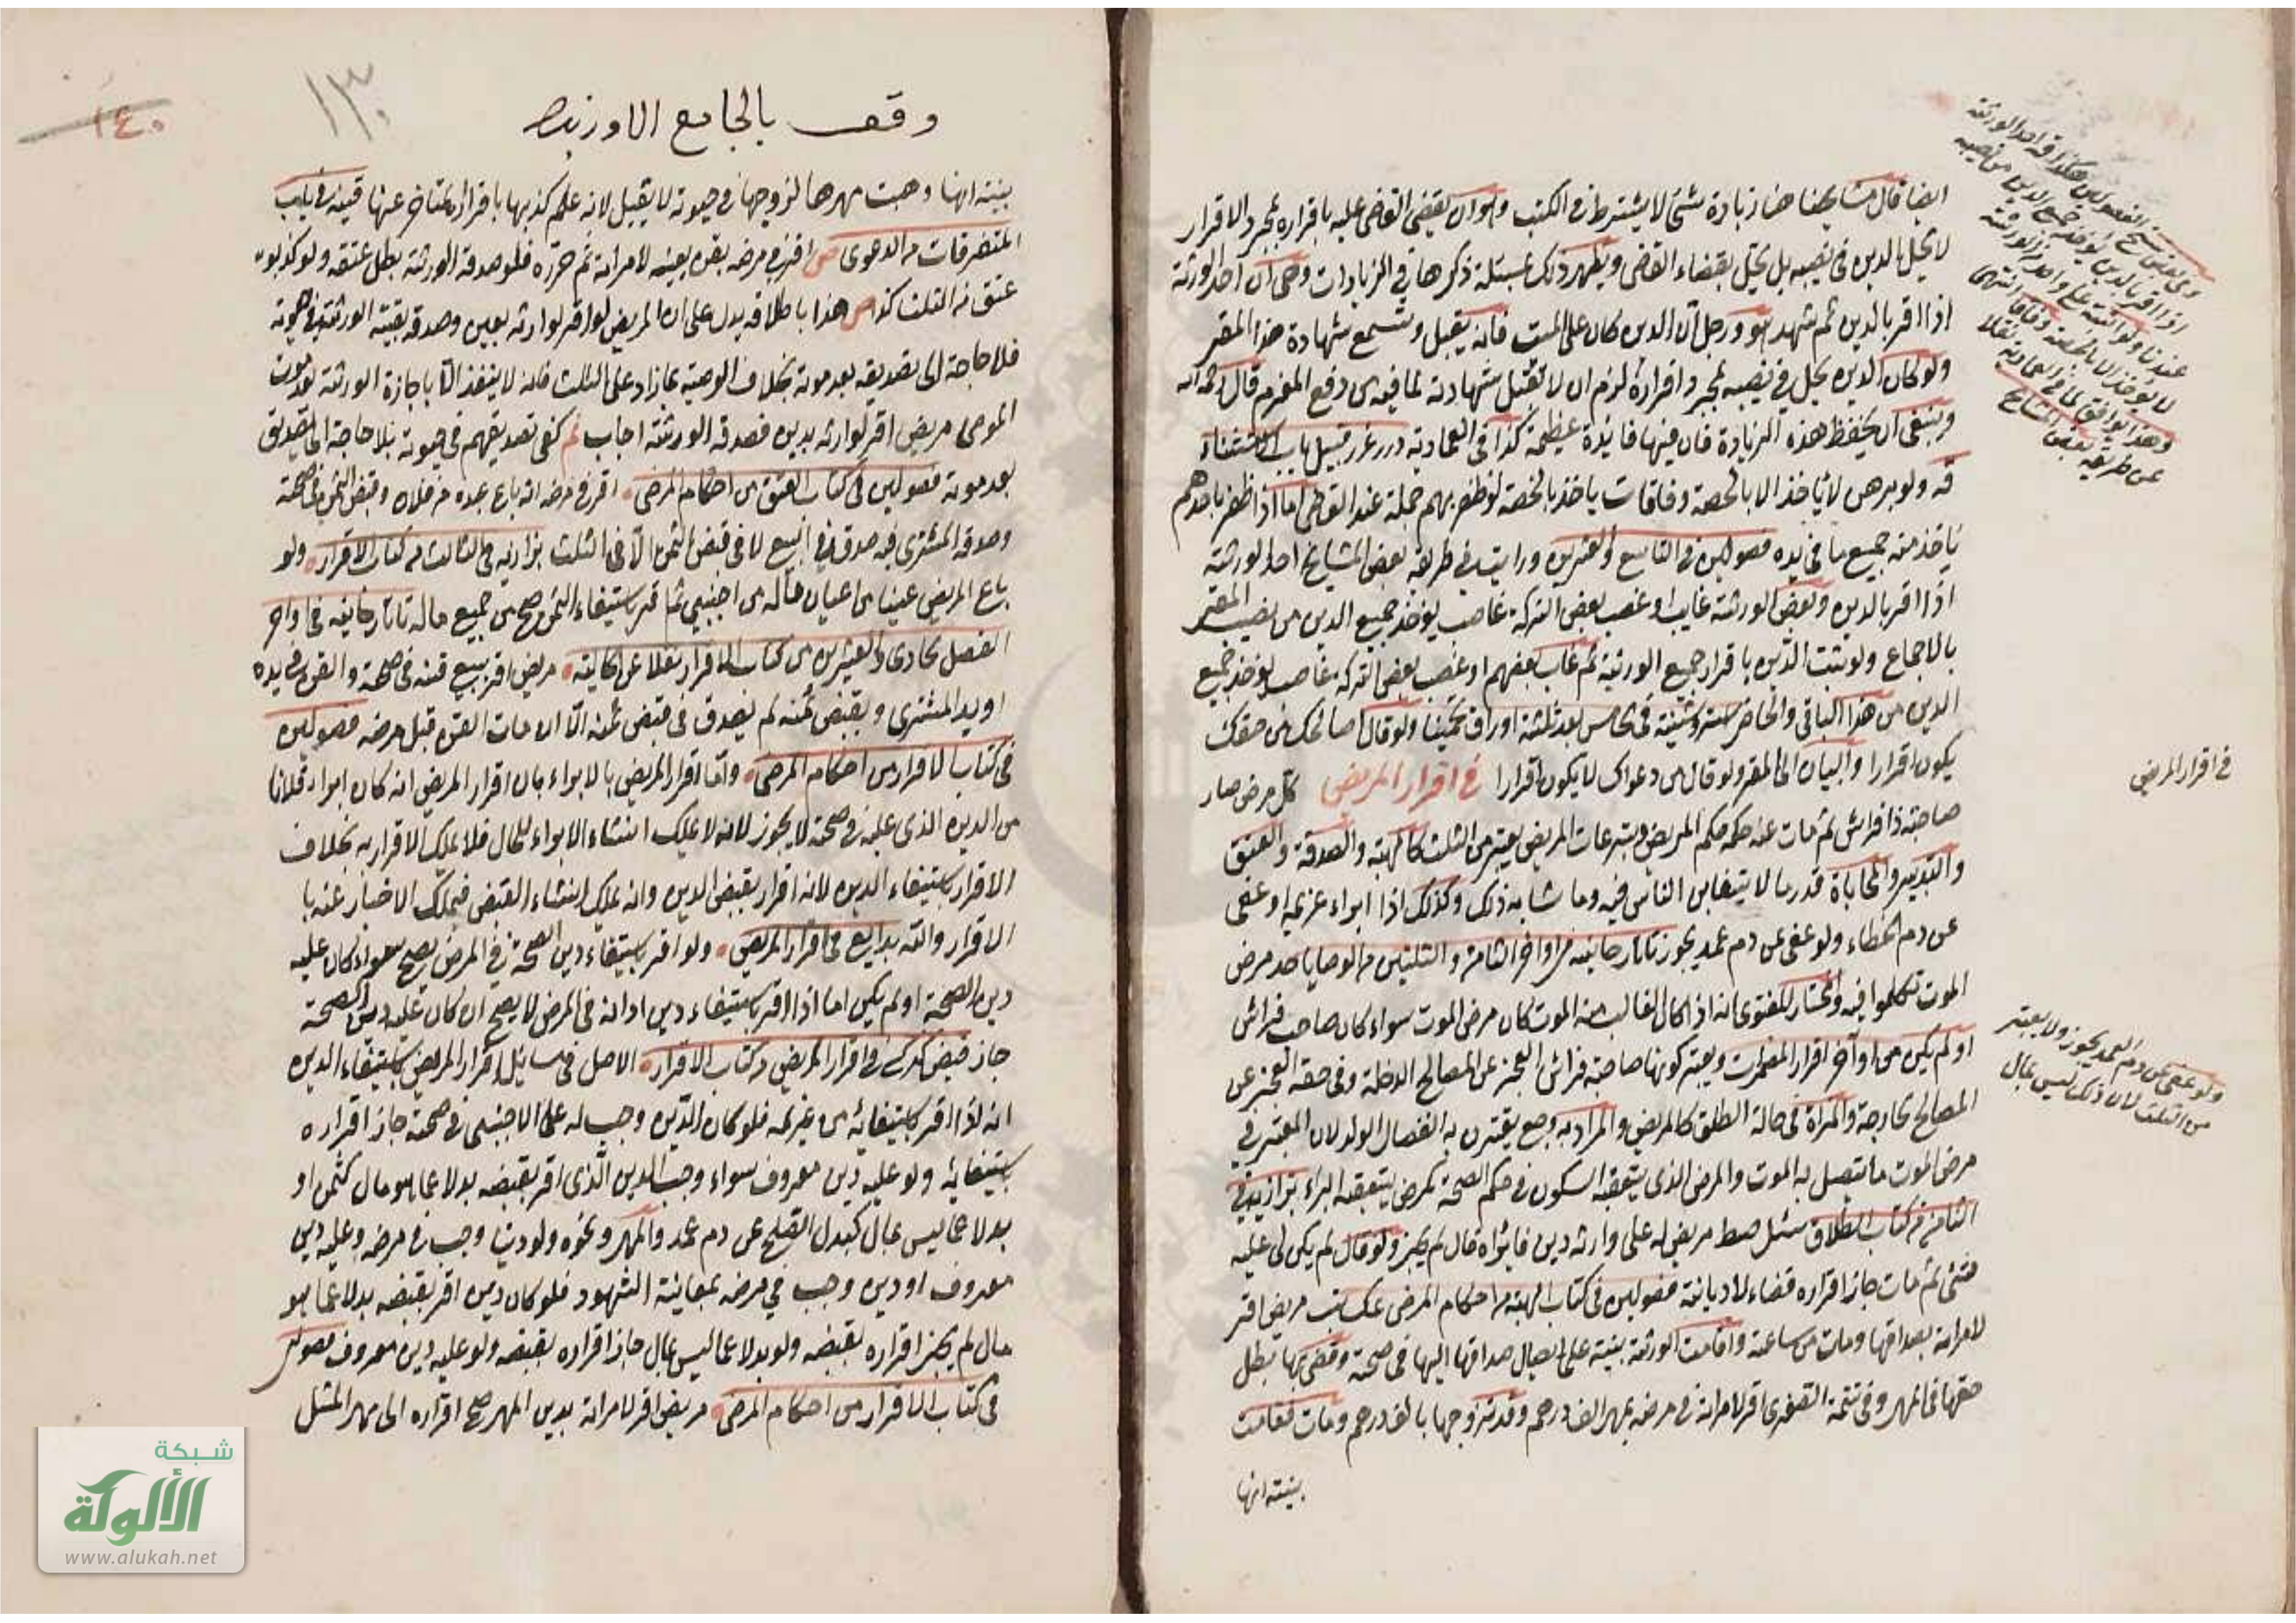 ايضا قال مشايخنا هنا زيادة شئ لا يشترط في الكتب وهو ان يقضى القاضى عليه باقراره بمجرد الاقرار
لا يحل الدين في نصيبه بل يحل بقضاء القاضى ويظهر ذلك بمسئلة ذكرها في الزيادات وهى ان احد الورثة
اذا اقر بالدين ثم شهد هو ورجل ان الدين كان على الميت فانه يقبل وتسمع شهادة هذا المقر
ولو كان الدين يحل في نصيبه بمجرد اقراره لزم ان لا تقبل شهادته لما فيه من دفع المغرم قال رحمه الله
وينبغى ان يحفظ هذه الزيادة فان فيها فائدة عظيمة كذا في العمادية درر غرر قبيل باب الاستثناء
قه ولو برهن لا ياخذ الا بالحصة وفاقات ياخذ بالحصة لو ظفر بهم جملة عند القاضى اما اذا ظفر باحدهم
ياخذ منه جميع ما في يده فصولين في التاسع والعشرين ورايت في طريقة بعض المشايخ احد الورثة
اذا اقر بالدين وبعض الورثة غايب او غصب بعض التركة غاصب يؤخذ جميع الدين من نصيب المقر
بالاجماع ولو ثبت الدين باقرار جميع الورثة ثم غاب بعضهم او غصب بعض التركة غاصب يؤخذ جميع
الدين من هذا الباقى والحاضر ولو قال اصالحك من حقك
يكون اقرارا والبيان الى المقر ولو قال من دعواك لا يكون اقرارا في اقرار المريض كل مرض صار
صاحبه ذا فراش ثم مات عنه حكمه حكم المريض وتبرعات المريض يعتبر من الثلث كالهبة والصدقة والعتق
والتدبير والمحاباة قدر ما لا يتغابن الناس فيه وما شابه ذلك وكذلك اذا ابراء غريمه او عفى
عن دم الخطاء ولو عفى عن دم عمد يجوز تاتارخانيه من اواخر الثامن والثلثين من الوصايا حد مرض
الموت تكلموا فيه والمختار للفتوى انه اذا كان الغالب منه الموت كان مرض الموت سواء كان صاحب فراش
او لم يكن من اواخر اقرار المضمرات ويعتبر كونها صاحبة فراش العجز عن المصالح الداخلة وفى حقه العجز عن
المصالح الخارجة والمراة في حالة الطلق كالمريض والمراد به وجع يقترن به انفصال الولد لان المعتبر في
مرض الموت ما يتصل به الموت والمرض الذى يتعقبه السكون في حكم الصحة كمرض يتعقبه البراء بزازيه في
الثامن من كتاب الطلاق سئل صط مريض له على وارثه دين فابراه قال لم يجز ولو قال لم يكن لى عليه
شئ ثم مات جاز اقراره قضاء لا ديانة فصولين في كتاب الهبة من احكام المرضى عك نب مريض اقر
لامراته بصداقها ومات من ساعته واقامت الورثة بينة على ايصال صداقها اليها في صحته وقضى بها يبطل
حقها في المهر وفى تتمة الصغرى اقر لامراته في مرضه بمهر الف درهم وقد تزوجها بالف درهم ومات فقامت
بينة انها
في اقرار المريض
ولو عفى عن دم العمد يجوز ولا يعتبر
من الثلث لان ذلك ليس بمال
١٤٠
١٣٠
وقف بالجامع الاوزبك
بينة انها وهبت مهرها لزوجها في حيوته لا يقبل لانه علم كذبها باقراره المتاخر عنها قنيه في باب
المتفرقات من الدعوى اقر في مرضه بقن بعينه لامراته ثم حرره فلو صدقه الورثة بطل عتقه ولو كذبوه
عتق من الثلث كذا هذا باطلاقه يدل على ان المريض لو اقر لوارثه بعين وصدقه بقية الورثة في حيوته
فلا حاجة الى تصديقه بعد موته بخلاف الوصية بما زاد على الثلث فانه لا ينفذ الا باجازة الورثة بعد موت
الموصى مريض اقر لوارثه بدين فصدقه الورثة اجاب كفى تصديقهم في حيوته بلا حاجة الى تصديق
بعد موته فصولين في كتاب العتق من احكام المرضى اقر في مرضه انه باع عبده من فلان وقبض الثمن في صحته
وصدقه المشترى فيه صدق في البيع لا في قبض الثمن الا في الثلث بزازيه في الثالث من كتاب الاقرار ولو
باع المريض عينا من اعيان ماله من اجنبى ثم اقر باستيفاء الثمن صح من جميع ماله تاتارخانيه في اواخر
الفصل الحادى والعشرين من كتاب الاقرار نقلا عن الخانية مريض اقر ببيع قنه في صحته والقن في يده
او يد المشترى وبقبض ثمنه لم يصدق في قبض ثمنه الا ان مات القن قبل مرضه فصولين
في كتاب الاقرار من احكام المرضى واما اقرار المريض بالابراء بان اقرار المريض انه كان ابراء فلانا
من الدين الذى عليه في صحته لا يجوز لانه لا يملك انشاء الابراء للحال فلا يملك الاقرار به بخلاف
الاقرار باستيفاء الدين لانه اقرار بقبض الدين وانه يملك انشاء القبض فيملك الاخبار عنه با
الاقرار والله بدايع في اقرار المريض ولو اقر باستيفاء دين الصحة في المرض يصح سواء كان عليه
دين الصحة او لم يكن اما اذا اقر باستيفاء دين ادانه في المرض لا يصح ان كان عليه دين الصحة
جاز فيض كركى في اقرار المريض من كتاب الاقرار الاصل في مسائل اقرار المريض باستيفاء الدين
انه اذا اقر باستيفائه من غريمه فلو كان الدين وجب له على الاجنبى في صحته جاز اقراره
باستيفائه ولو عليه دين معروف سواء وجب الدين الذى اقر بقبضه بدلا عما هو مال كثمن او
بدلا عما ليس بمال كبدل الصلح عن دم عمد والمهر ونحوه ولو دينا وجب في مرضه وعليه دين
معروف او دين وجب في مرضه بمعاينة الشهود فلو كان دين اقر بقبضه بدلا عما هو
مال لم يجز اقراره بقبضه ولو بدلا عما ليس بمال جاز اقراره بقبضه ولو عليه دين معروف فصولين
في كتاب الاقرار من احكام المرضى مريض اقر لامراته بدين المهر صح اقراره الى مهر المثل
شبكة
الألوكة
www.alukah.net